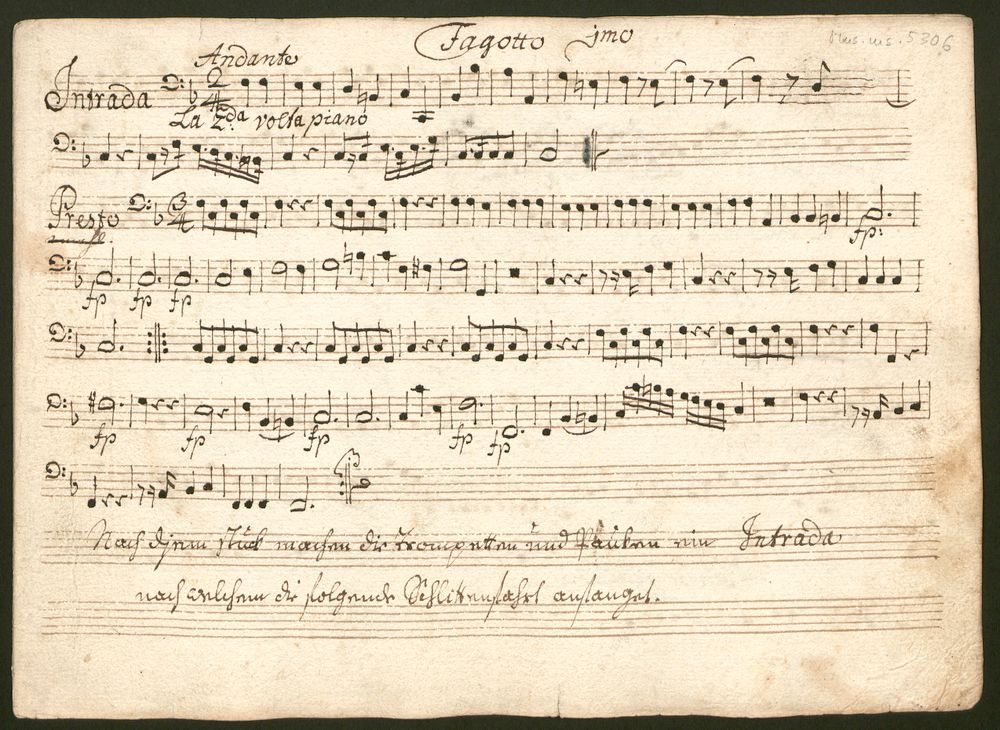 Fagotto jmo
Mus. ms. 5306
Andante
Intrada
La 2da volta piano
Presto
fp:
fp fp fp
fp fp fp fp fp
Nach disem stück machen die trompetten und Paucken ein Intrada
nach welchem die folgende Schlittenfahrt anfanget.